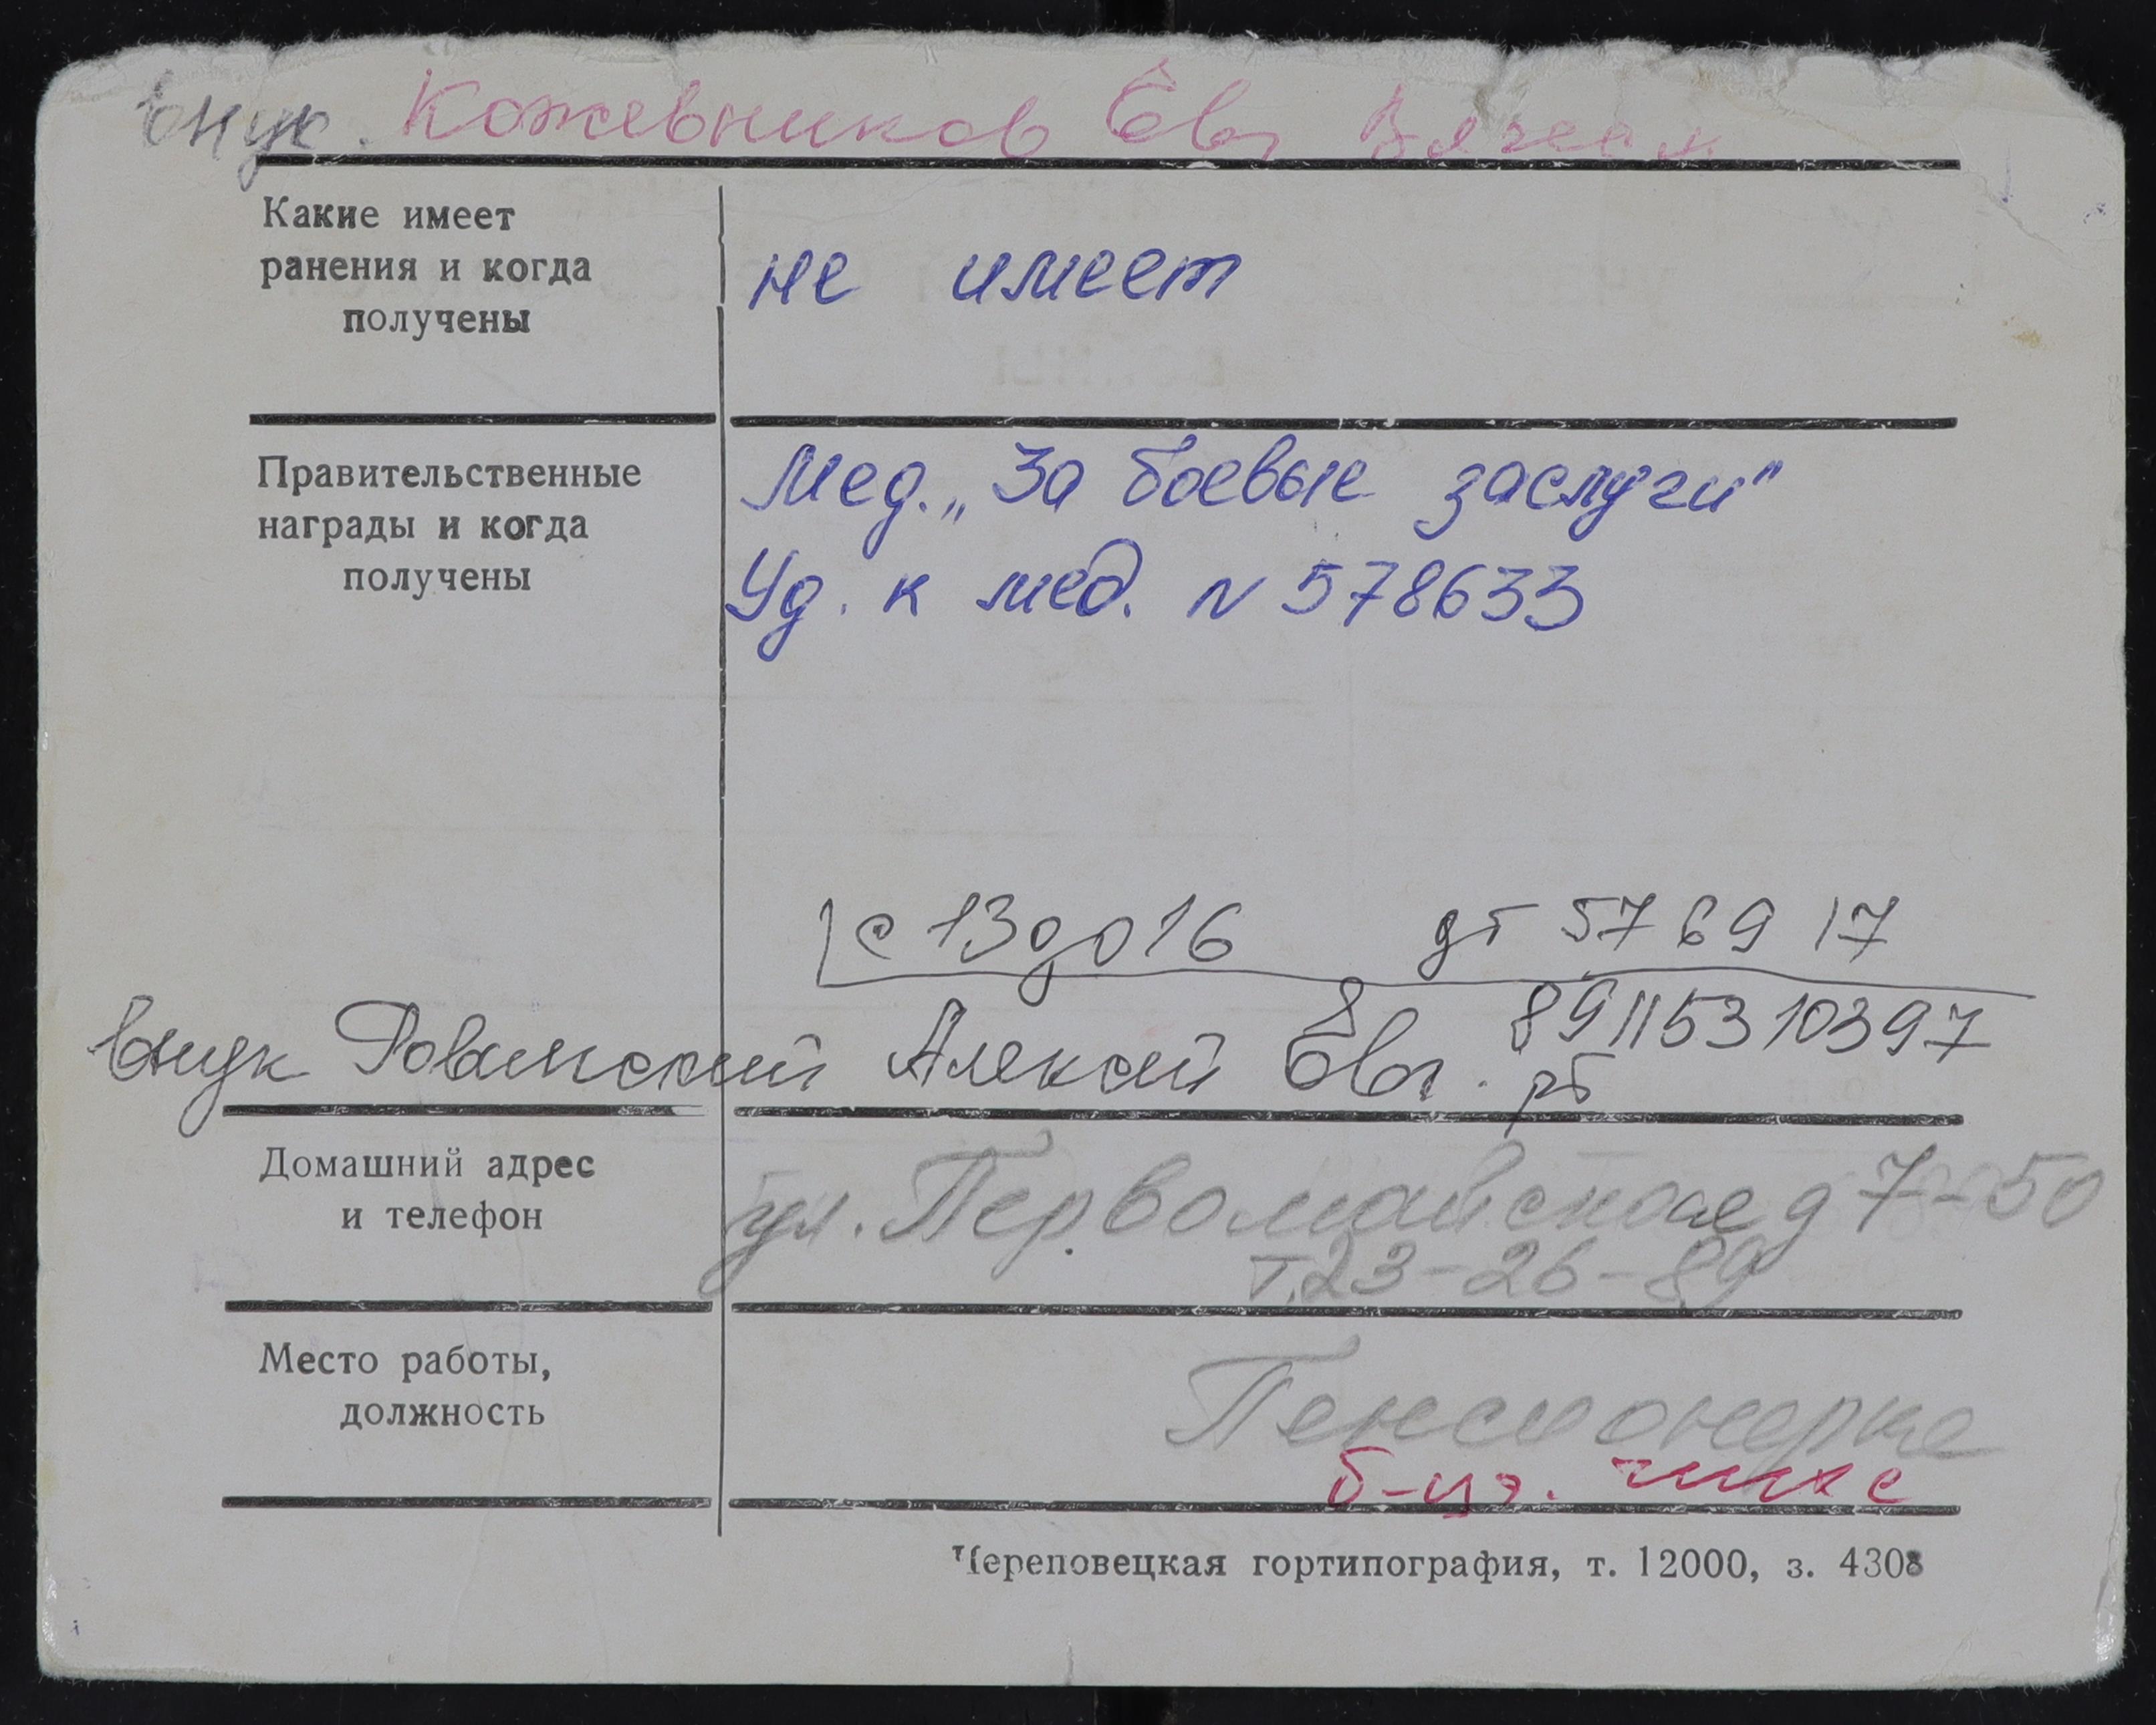 внук. Кожевников Евг Вячесл
Какие имеет
ранения и когда
получены
не имеет
Правительственные
награды и когда
получены
Мед. „За боевые заслуги"
Уд. к мед. N 578633
с 13 до 16 дт 57 69 17
8 89115310397
внук Алексей Евг. рб
Домашний адрес
и телефон
ул. Первомайская д 7-50
т. 23-26-89
Место работы,
должность
Пенсионерка
Череповецкая гортипография, т. 12000, з. 4308